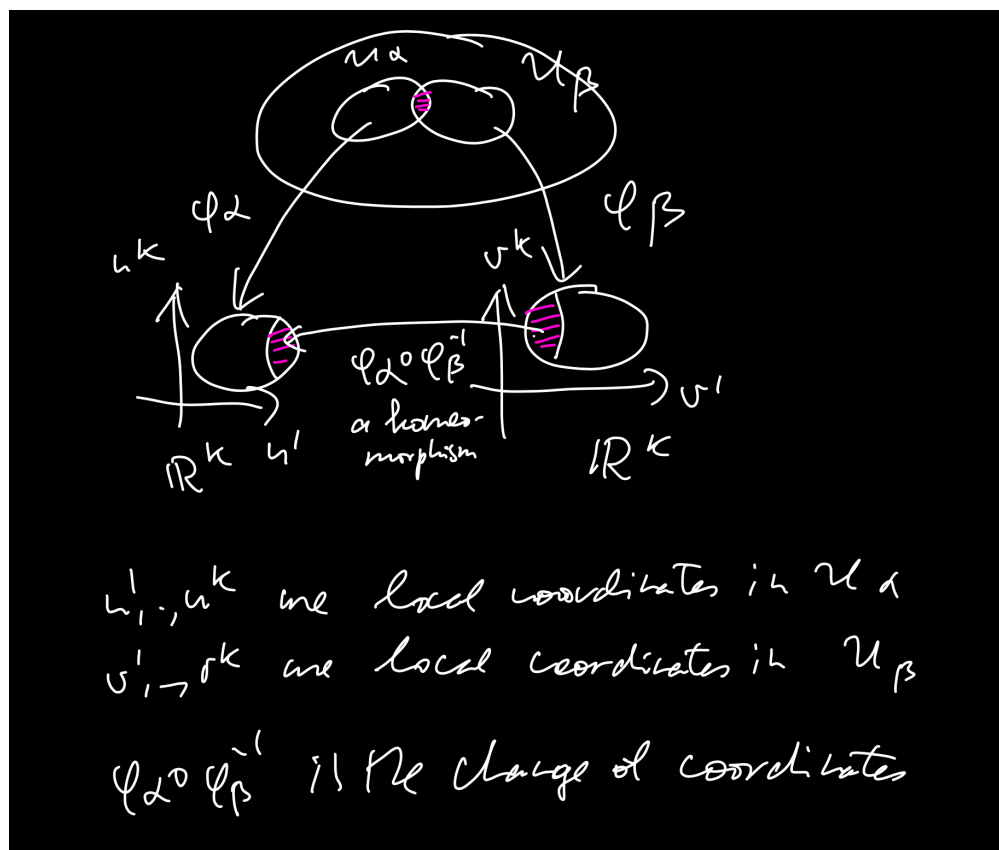 𝒰α 𝒰β
φα φβ
u^k v^k
φα∘φβ^-1
v^1
a homeo-
morphism
ℝ^k u^1 ℝ^k
u^1,..,u^k are local coordinates in 𝒰α
v^1,..,v^k are local coordinates in 𝒰β
φα∘φβ^-1 is the change of coordinates